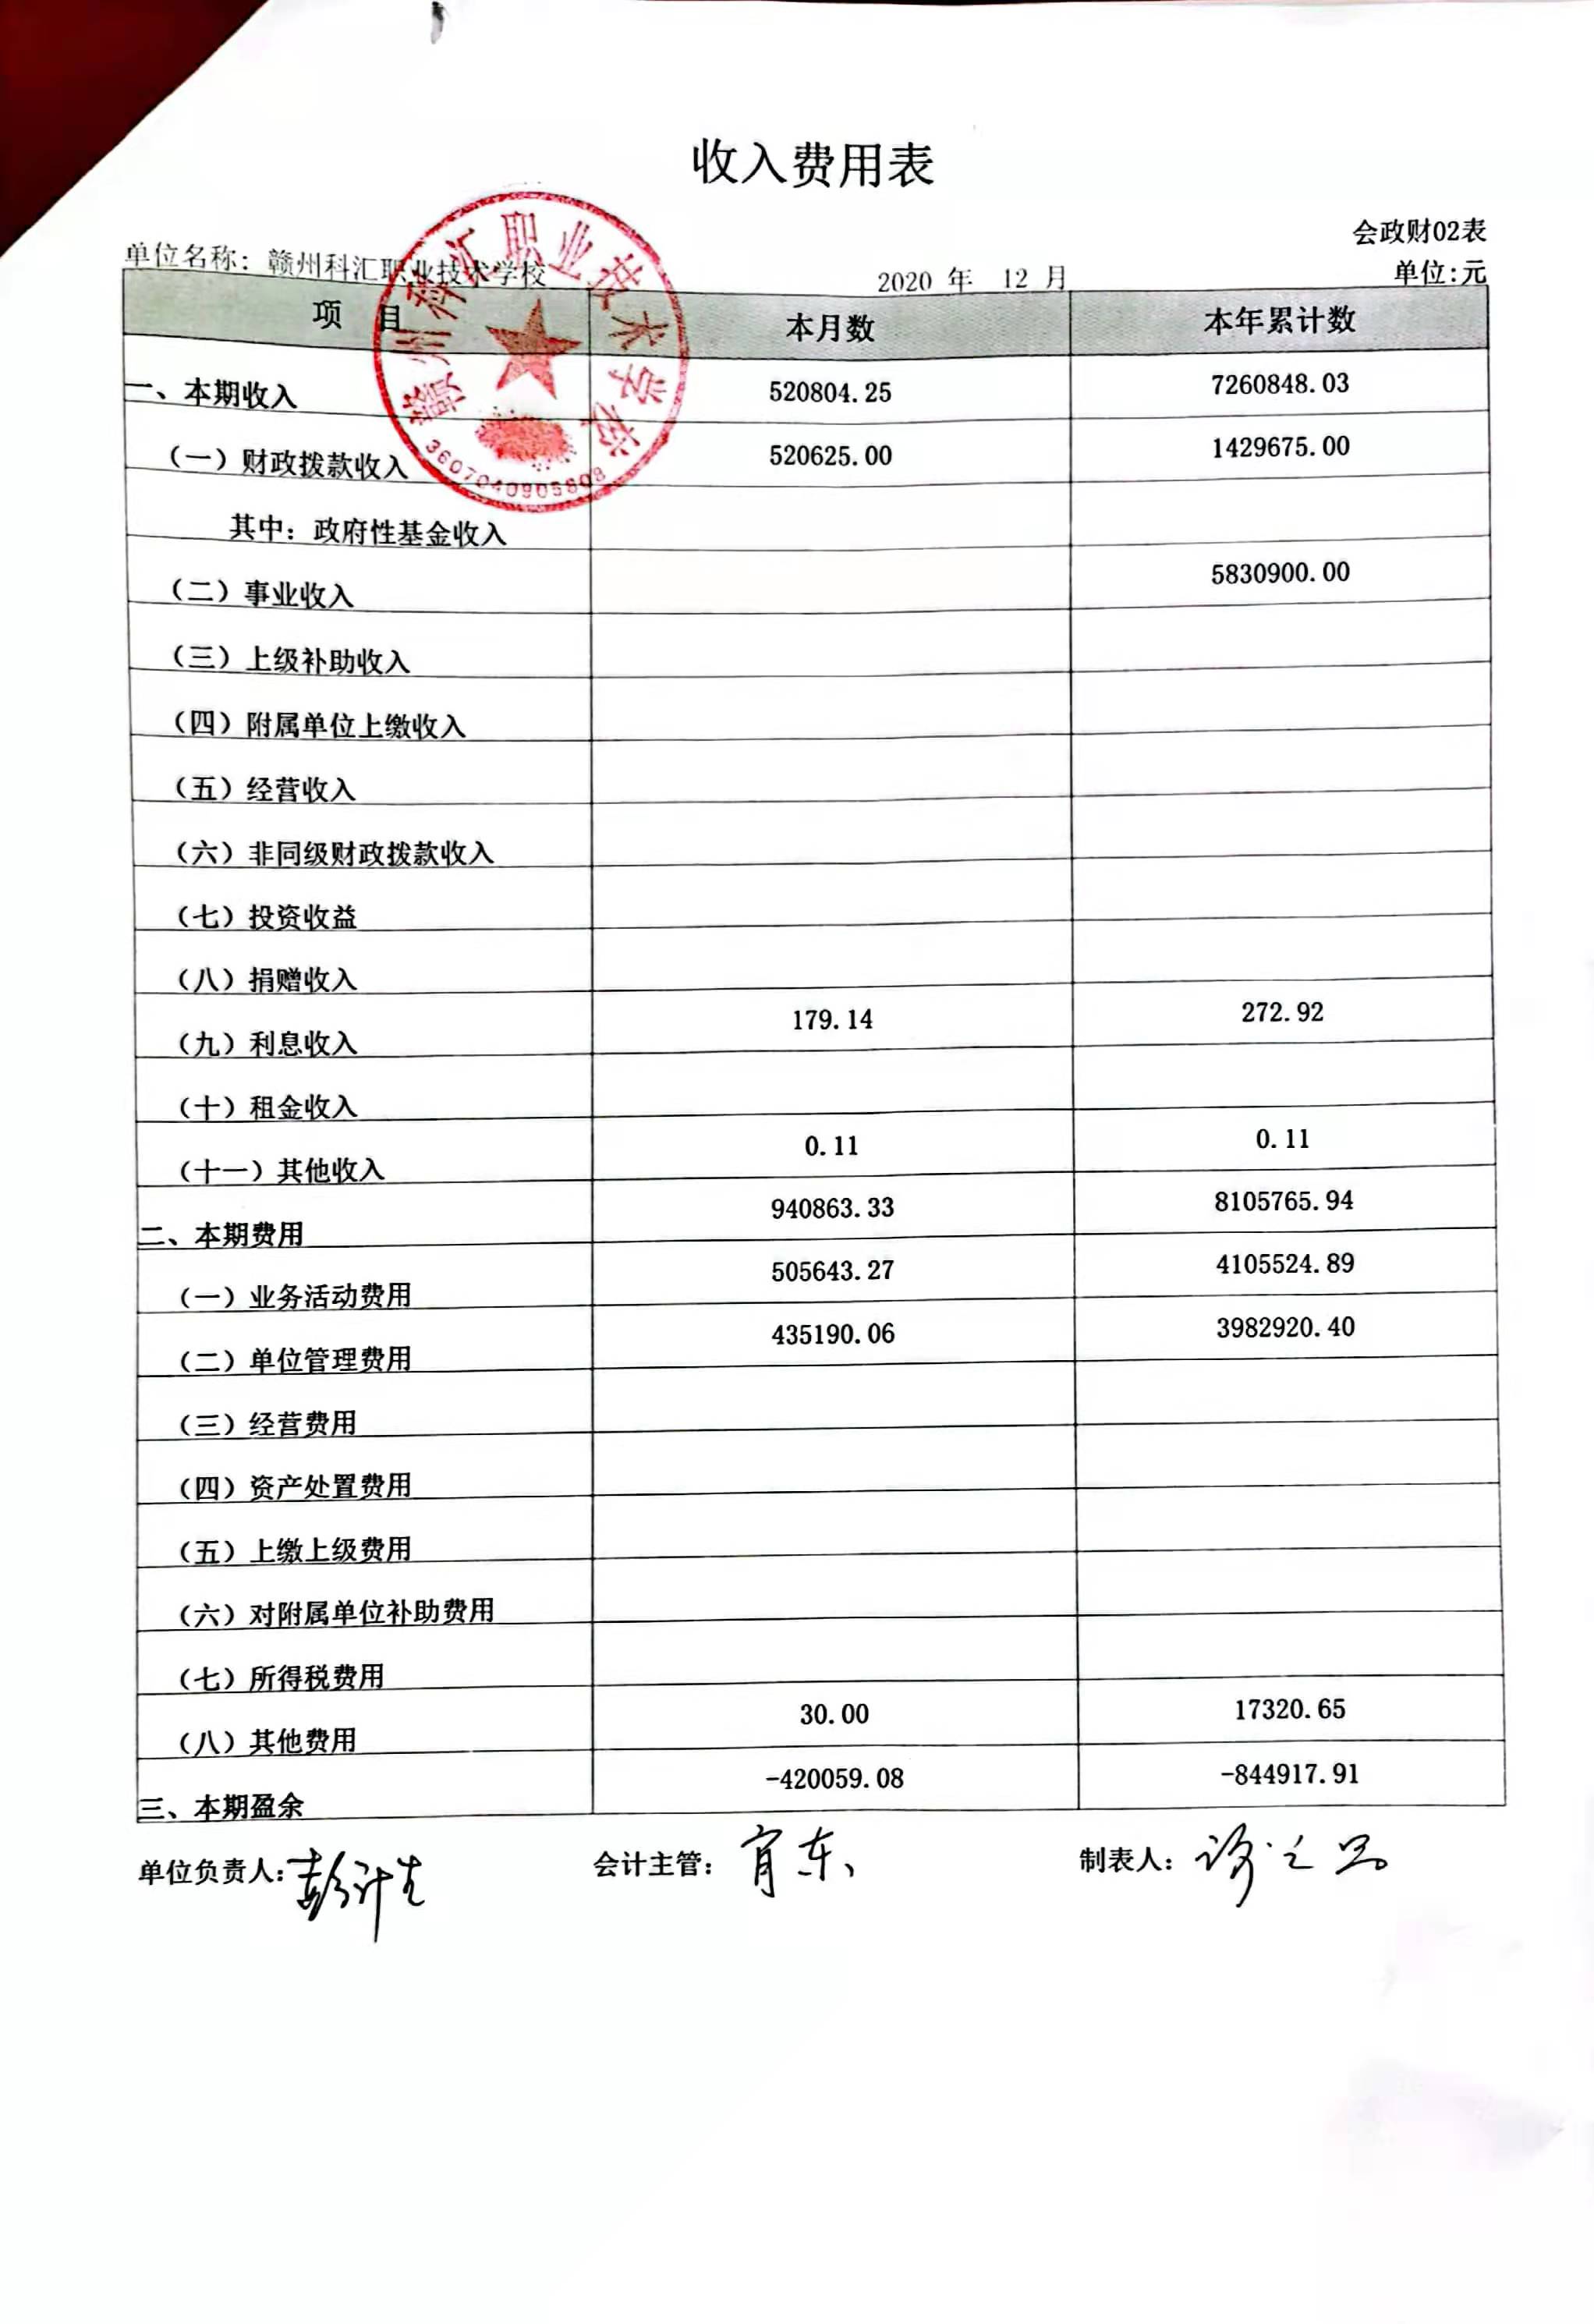 收入费用表
会政财02表
单位名称：赣州科汇职业技术学校 2020 年 12 月 单位:元
项 目 本月数 本年累计数
一、本期收入 520804.25 7260848.03
（一）财政拨款收入 520625.00 1429675.00
其中：政府性基金收入
（二）事业收入 5830900.00
（三）上级补助收入
（四）附属单位上缴收入
（五）经营收入
（六）非同级财政拨款收入
（七）投资收益
（八）捐赠收入
（九）利息收入 179.14 272.92
（十）租金收入
（十一）其他收入 0.11 0.11
二、本期费用 940863.33 8105765.94
（一）业务活动费用 505643.27 4105524.89
（二）单位管理费用 435190.06 3982920.40
（三）经营费用
（四）资产处置费用
（五）上缴上级费用
（六）对附属单位补助费用
（七）所得税费用
（八）其他费用 30.00 17320.65
三、本期盈余 -420059.08 -844917.91
单位负责人: 会计主管： 制表人：
赣州科汇职业技术学校